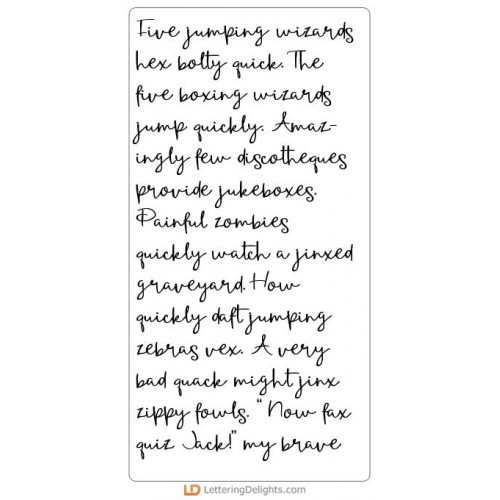 Five jumping wizards
hex bolty quick. The
five boxing wizards
jump quickly. Amaz-
ingly few discotheques
provide jukeboxes.
Painful zombies
quickly watch a jinxed
graveyard. How
quickly daft jumping
zebras vex. A very
bad quack might jinx
zippy fowls. "Now fax
quiz Jack!" my brave
LD LetteringDelights.com